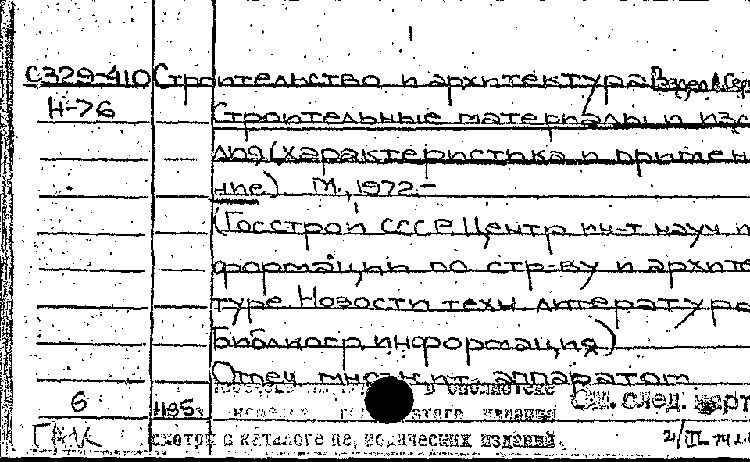 С329-410 Строительство и архитектура Раздел Б. Сер
Н-76 Строительные материалы и изд
лия (характеристика и примен
ние). М., 1972.-
(Госстрой СССР. Центр. ин-т науч. и
формации по стр-ву и архите
туре. Новости техн. литературе
Библиогр. информация)
Отпеч. множит. аппаратом
6 в библиотеке См. след. карт
1195 этого издания
ГАК смотри в каталоге периодических изданий. 2/III-74